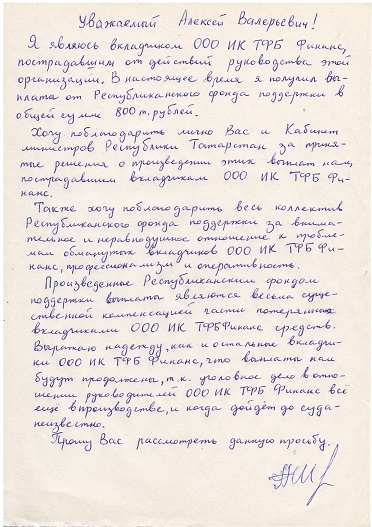 Уважаемый Алексей Валерьевич!
Я являюсь вкладчиком ООО ИК ТФБ Финанс,
пострадавшим от действий руководства этой
организации. В настоящее время я получил вы-
плата от Республиканского фонда поддержки в
общей сумме 800 т. рублей.
Хочу поблагодарить лично Вас и Кабинет
министров Республики Татарстан за приня-
тые решения о произведении этих выплат нам,
пострадавшим вкладчикам ООО ИК ТФБ Фи-
нанс.
Также хочу поблагодарить весь коллектив
Республиканского фонда поддержки за внима-
тельное и неравнодушное отношение к пробле-
мам обманутых вкладчиков ООО ИК ТФБ Фи-
нанс, профессионализм и оперативность.
Произведенные Республиканским фондом
поддержки выплаты являются весьма суще-
ственной компенсацией части потерянных
вкладчиками ООО ИК ТФБ Финанс средств.
Выражаю надежду, как и остальные вкладчи-
ки ООО ИК ТФБ Финанс, что выплаты нам
будут продолжены, т.к. уголовное дело в отно-
шении руководителей ООО ИК ТФБ Финанс всё
ещё в производстве, и когда дойдёт до суда-
неизвестно.
Прошу Вас рассмотреть данную просьбу.